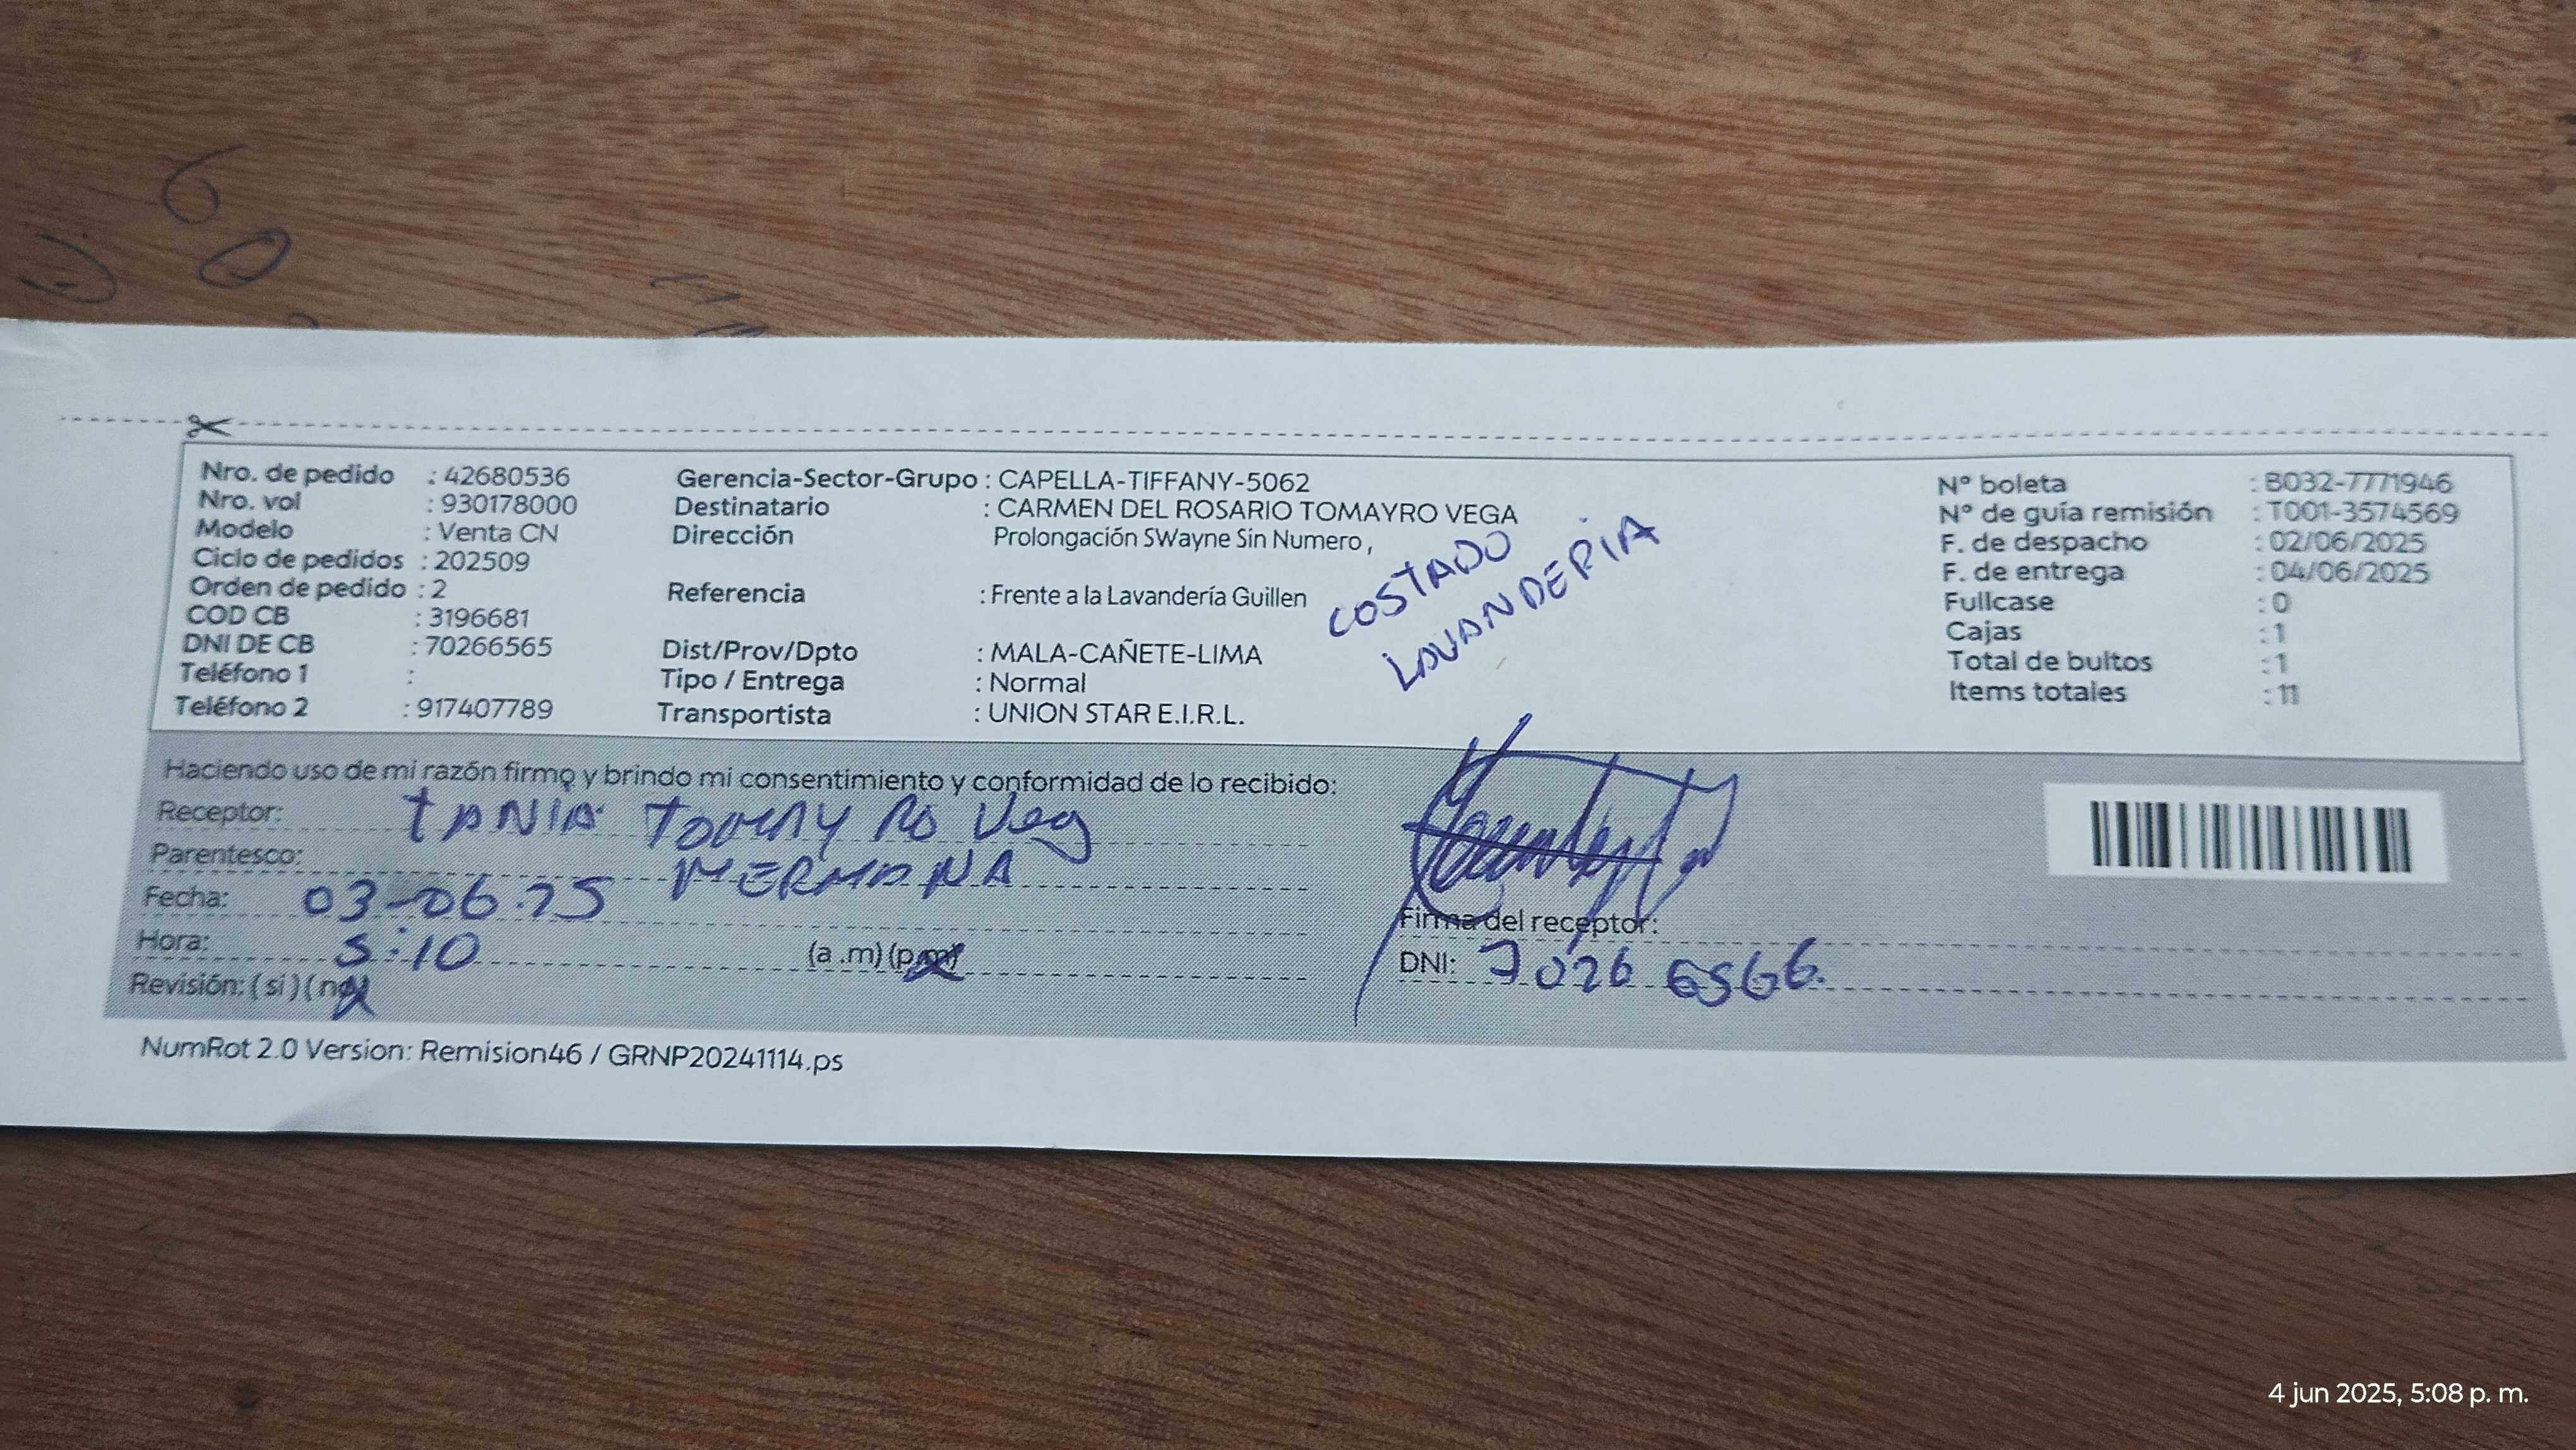 Nro. de pedido : 42680536
Nro. vol : 930178000
Modelo : Venta CN
Ciclo de pedidos : 202509
Orden de pedido : 2
COD CB : 3196681
DNI DE CB : 70266565
Teléfono 1 :
Teléfono 2 : 917407789
Gerencia-Sector-Grupo : CAPELLA-TIFFANY-5062
Destinatario : CARMEN DEL ROSARIO TOMAYRO VEGA
Dirección Prolongación SWayne Sin Numero ,
Referencia : Frente a la Lavandería Guillen
Dist/Prov/Dpto : MALA-CAÑETE-LIMA
Tipo / Entrega : Normal
Transportista : UNION STAR E.I.R.L.
COSTADO
LAVANDERIA
N° boleta : B032-7771946
N° de guía remisión : T001-3574569
F. de despacho : 02/06/2025
F. de entrega : 04/06/2025
Fullcase : 0
Cajas : 1
Total de bultos : 1
Items totales : 11
Haciendo uso de mi razón firmo y brindo mi consentimiento y conformidad de lo recibido:
Receptor: TANIA Tomay Ro Veg
Parentesco: HERMANA
Fecha: 03-06.25
Hora: 5:10 (a .m) (p.m)
Revisión: ( si ) ( no )
Firma del receptor:
DNI: 7026 6566.
NumRot 2.0 Version: Remision46 / GRNP20241114.ps
4 jun 2025, 5:08 p. m.